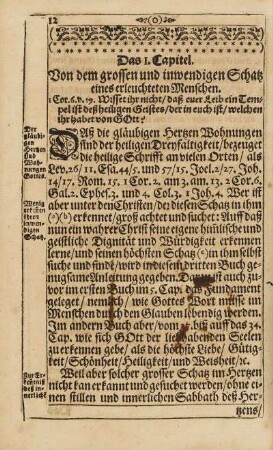 12
Das I. Capitel.
Von dem grossen und inwendigen Schatz
eines erleuchteten Menschen.
1 Cor. 6. v. 19. Wisset ihr nicht/ daß euer Leib ein Tem-
pel ist deß heiligen Geistes/ der in euch ist/ welchen
ihr habet von GOtt?
Der
gläubi-
gen
Hertzen
sind
Woh-
nungen
Gottes.
DAß die gläubigen Hertzen Wohnungen
sind der heiligen Dreyfaltigkeit/ bezeuget
die heilige Schrifft an vielen Orten/ als
Lev. 26/11. Esa. 44/5. und 57/15. Joel. 2/27. Joh.
14/17. Rom. 15. 1 Cor. 2. am 3. am 13. 2 Cor. 6.
Gal. 2. Ephes. 3. und 4. Col. 3. 1 Joh. 4. Wer ist
aber unter den Christen/ der diesen Schatz in ihm
Wenig
erkennen
ihren
inwen-
digen
Schatz.
(a) (b) erkennet/ groß achtet und suchet: Auff daß
nun ein wahrer Christ seine eigene himlische und
geistliche Dignität und Würdigkeit erkennen
lerne/ und seinen höchsten Schatz (c) in ihm selbst
suche und findet/ wird in diesem dritten Buch ge-
nugsame Anleitung gegeben. Darauff ist auch zu-
vor im ersten Buch im 5. Cap. das Fundament
geleget/ nemlich/ wie Gottes Wort müsse im
Menschen durch den Glauben lebendig werden.
Im andern Buch aber/ vom biß auff das 34.
Cap. wie sich GOtt der liebhabenden Seelen
zu erkennen gebe/ als die höchste Liebe/ Gütig-
keit/ Schönheit/ Heiligkeit/ und Weisheit/ ꝛc.
Zur Er-
kentniß
deß in-
nerlichē
Weil aber solcher grosser Schatz im Hertzen
nicht kan erkannt und gesuchet werden/ ohne ei-
nen stillen und innerlichen Sabbath deß Her-
tzens/